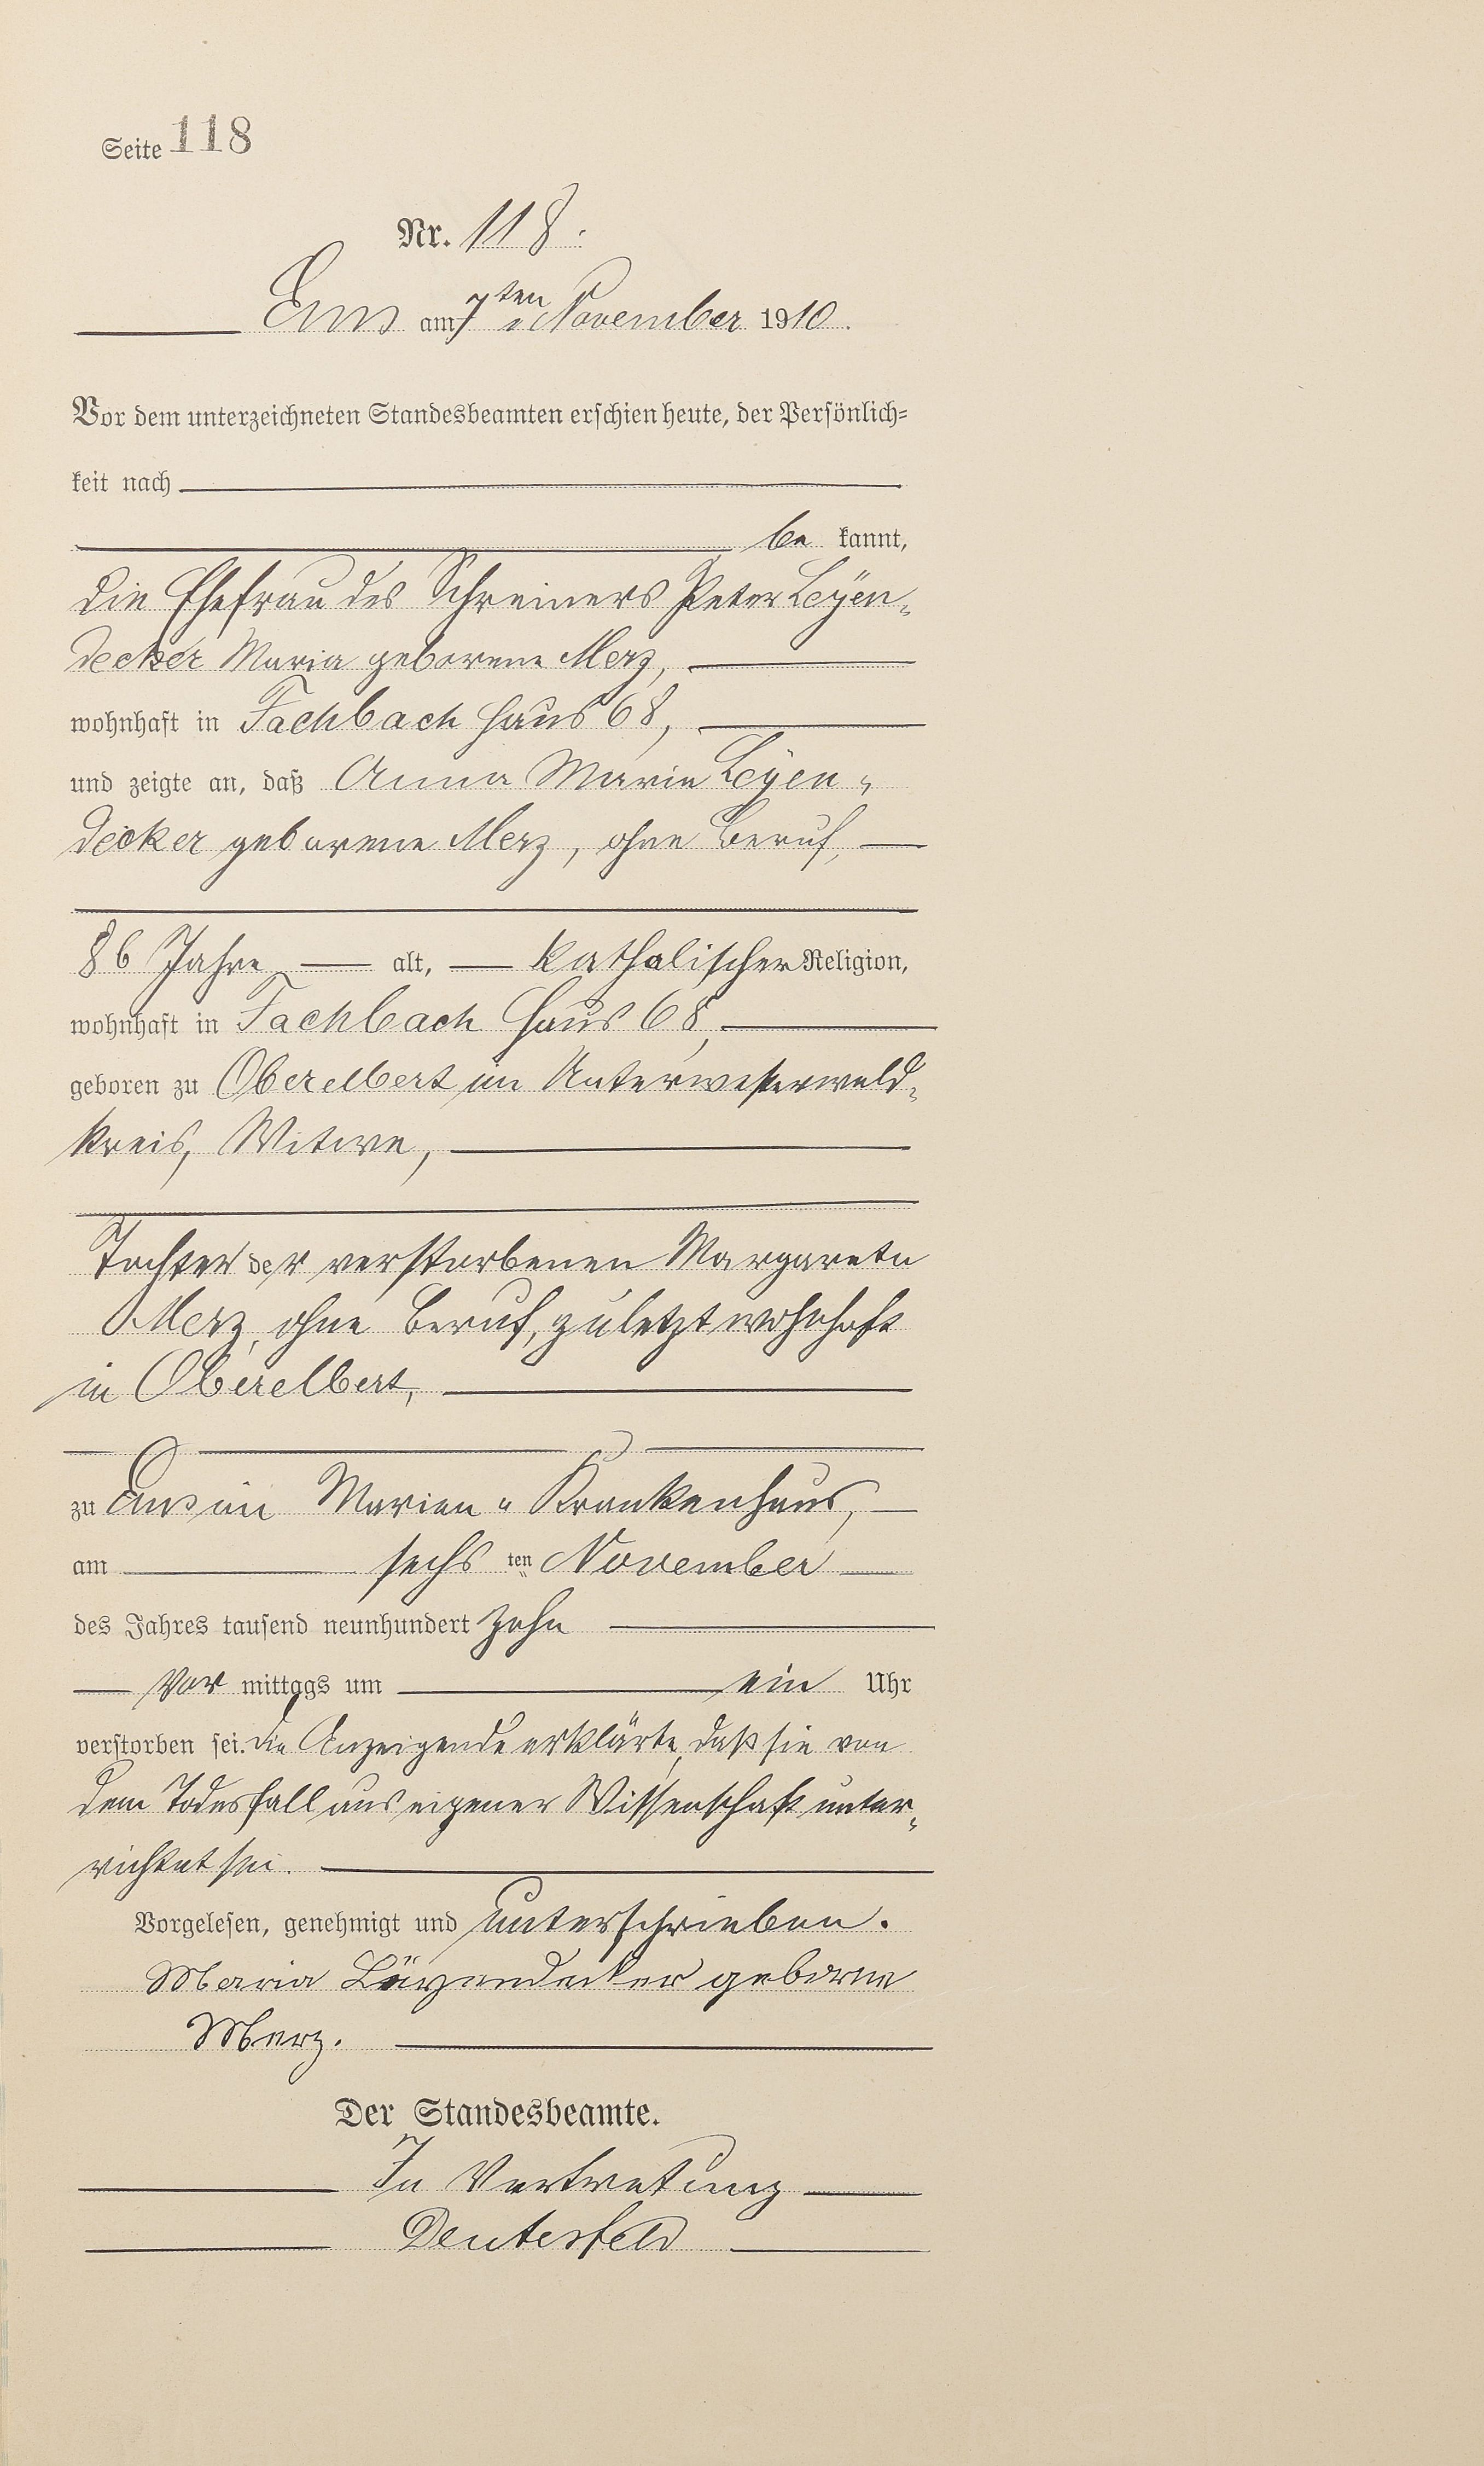 Seite 118
Nr. 118.
Ems am 7ten November 1910.
Vor dem unterzeichneten Standesbeamten erschien heute, der Persönlich-
keit nach
be kannt,
die Ehefrau des Schreiners Peter Leÿen-
decker Maria geborene Merz,
wohnhaft in Fachbach Haus 68,
und zeigte an, daß Anna Maria Leÿen-
decker geborene Merz, ohne Beruf,
86 Jahre alt, katholischer Religion,
wohnhaft in Fachbach Haus 68,
geboren zu Oberelbert im Unterwesterwald-
kreis, Witwe,
Tochter der verstorbenen Margareta
Merz, ohne Beruf, zuletzt wohnhaft
in Oberelbert,
zu Ems im Marien-Krankenhaus,
am sechs ten November
des Jahres tausend neunhundert zehn
Vor mittags um ein Uhr
verstorben sei. Die Anzeigende erklärte, daß sie von
dem Todesfall aus eigener Wissenschaft unter-
richtet sei.
Vorgelesen, genehmigt und unterschrieben.
Maria Läyendecker geborne
Merz.
Der Standesbeamte.
In Vertretung
Deutesfeld